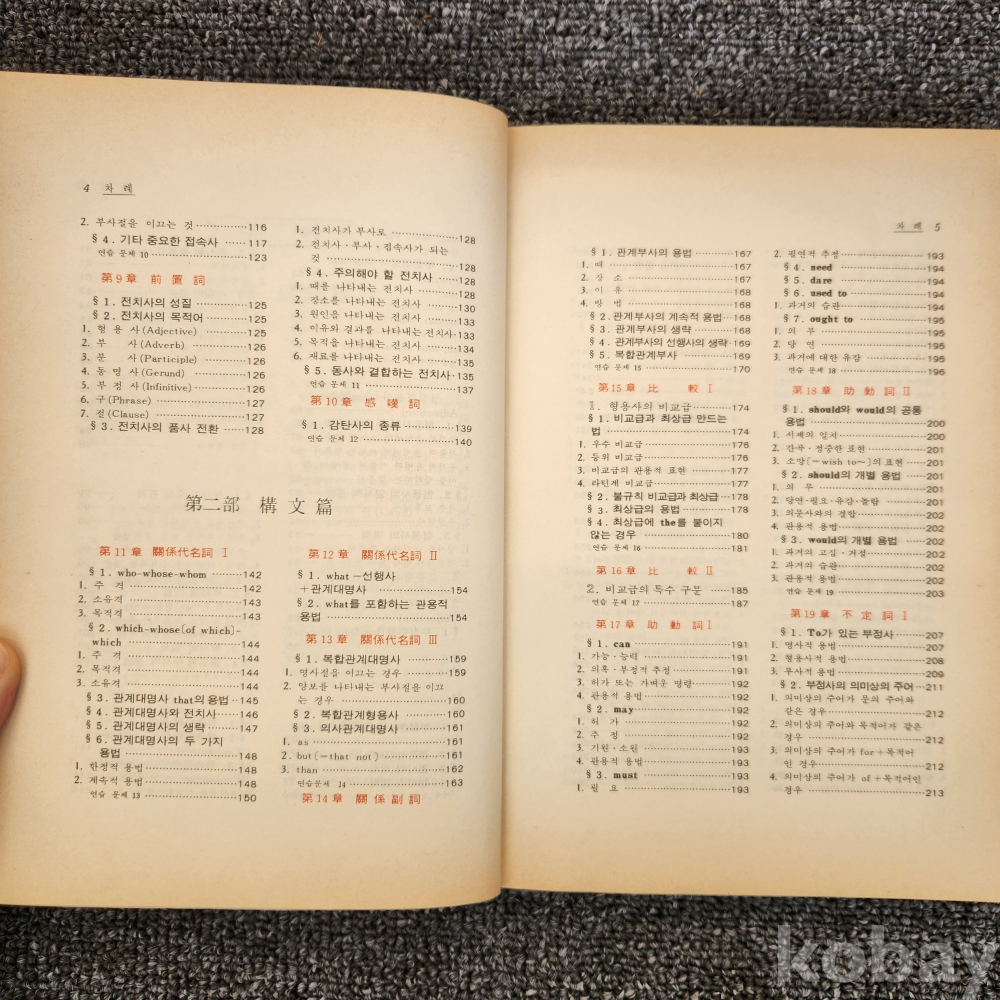 4 차 례
2. 부사절을 이끄는 것 ················116
§ 4. 기타 중요한 접속사 ······117
연습 문제 10 ························123
第9章 前 置 詞
§ 1. 전치사의 성질 ··············125
§ 2. 전치사의 목적어 ··········125
1. 형 용 사 (Adjective) ············126
2. 부 사 (Adverb) ················126
3. 분 사 (Participle) ············126
4. 동 명 사 (Gerund) ··············126
5. 부 정 사 (Infinitive) ············126
6. 구 (Phrase) ························126
7. 절 (Clause) ························126
§ 3. 전치사의 품사 전환 ······128
1. 전치사가 부사로 ··················128
2. 전치사·부사·접속사가 되는
것 ········································128
§ 4. 주의해야 할 전치사 ······128
1. 때를 나타내는 전치사 ··········128
2. 장소를 나타내는 전치사 ······130
3. 원인을 나타내는 전치사 ······133
4. 이유와 결과를 나타내는 전치사·133
5. 목적을 나타내는 전치사 ······134
6. 재료를 나타내는 전치사 ······135
§ 5. 동사와 결합하는 전치사·135
연습 문제 11 ························137
第10章 感 嘆 詞
§ 1. 감탄사의 종류 ··············139
연습 문제 12 ························140
第二部 構 文 篇
第11章 關係代名詞 I
§ 1. who-whose-whom ·········142
1. 주 격 ································142
2. 소유격 ································143
3. 목적격 ································143
§ 2. which-whose〔of which〕-
which ································144
1. 주 격 ································144
2. 목적격 ································144
3. 소유격 ································144
§ 3. 관계대명사 that의 용법··145
§ 4. 관계대명사와 전치사 ·····146
§ 5. 관계대명사의 생략 ·······147
§ 6. 관계대명사의 두 가지
용법 ································148
1. 한정적 용법 ························148
2. 계속적 용법 ························148
연습 문제 13 ························150
第12章 關係代名詞 II
§ 1. what＝선행사
＋관계대명사 ··················154
§ 2. what를 포함하는 관용적
용법 ································154
第13章 關係代名詞 III
§ 1. 복합관계대명사 ············159
1. 명사절을 이끄는 경우 ··········159
2. 양보를 나타내는 부사절을 이끄
는 경우 ································160
§ 2. 복합관계형용사 ············160
§ 3. 의사관계대명사 ············161
1. as ········································161
2. but〔＝that not〕 ················161
3. than ····································162
연습문제 14 ························163
第14章 關係副詞
차 례 5
§ 1. 관계부사의 용법 ···········167
1. 때 ········································167
2. 장 소 ································167
3. 이 유 ································168
4. 방 법 ································168
§ 2. 관계부사의 계속적 용법···168
§ 3. 관계부사의 생략 ···········168
§ 4. 관계부사의 선행사의 생략·169
§ 5. 복합관계부사 ···············169
연습 문제 15 ························170
第15章 比 較 I
1. 형용사의 비교급 ··················174
§ 1. 비교급과 최상급 만드는
법 ····································174
1. 우수 비교급 ························176
2. 등위 비교급 ························176
3. 비교급의 관용적 표현 ··········177
4. 라틴계 비교급 ····················177
§ 2. 불규칙 비교급과 최상급···178
§ 3. 최상급의 용법 ··············178
§ 4. 최상급에 the를 붙이지
않는 경우 ························180
연습 문제 16 ························181
第16章 比 較 II
2. 비교급의 특수 구문 ······185
연습 문제 17 ························187
第17章 助 動 詞 I
§ 1. can ································191
1. 가능·능력 ··························191
2. 의혹·부정적 추정 ···············191
3. 허가 또는 가벼운 명령 ··········192
4. 관용적 용법 ························192
§ 2. may ·······························192
1. 허 가 ································192
2. 추 정 ································192
3. 기원·소원 ··························193
4. 관용적 용법 ························193
§ 3. must ······························193
1. 필 요 ································193
2. 필연적 추정 ························193
§ 4. need ······························194
§ 5. dare ······························194
§ 6. used to ··························194
1. 과거의 습관 ························194
§ 7. ought to ························195
1. 의 무 ································195
2. 당 연 ································195
3. 과거에 대한 유감 ·················195
연습 문제 18 ························196
第18章 助 動 詞 II
§ 1. should와 would의 공통
용법 ································200
1. 시제의 일치 ························201
2. 간곡·정중한 표현 ···············201
3. 소망〔＝wish to~〕의 표현 ······201
§ 2. should의 개별 용법 ······201
1. 의 무 ································201
2. 당연·필요·유감·놀람 ··········201
3. 의문사와의 결합 ··················202
4. 관용적 용법 ························202
§ 3. would의 개별 용법 ······202
1. 과거의 고집·거절 ···············202
2. 과거의 습관 ························202
3. 관용적 용법 ························202
연습 문제 19 ························203
第19章 不 定 詞 I
§ 1. To가 있는 부정사 ·········207
1. 명사적 용법 ························207
2. 형용사적 용법 ····················208
3. 부사적 용법 ························209
§ 2. 부정사의 의미상의 주어···211
1. 의미상의 주어가 문의 주어와
같은 경우 ····························212
2. 의미상의 주어와 목적어가 같은
경우 ····································212
3. 의미상의 주어가 for＋목적어
인 경우 ································212
4. 의미상의 주어가 of＋목적어인
경우 ····································213
kobay